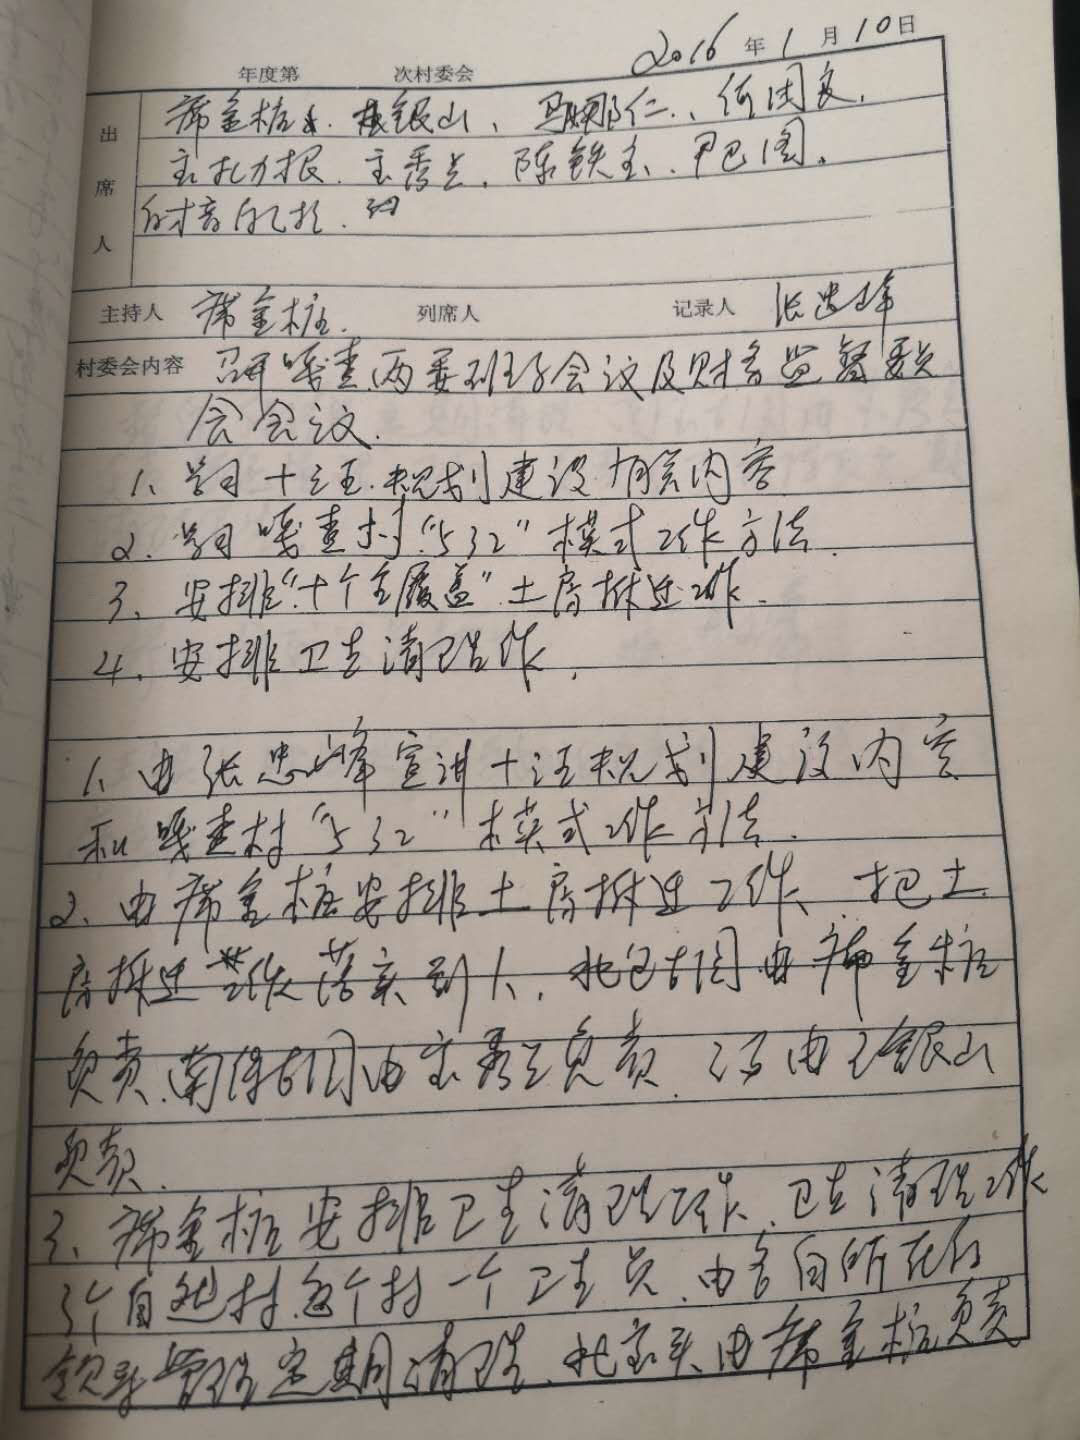 2016年1月10日
年度第 次村委会
出席人
席金柱、银山、仁、何国良、
扎力根、秀兰、陈铁宝、巴图、
主持人 席金柱. 列席人 记录人 张忠峰
村委会内容 召开嘎查两委班子会议及财务监督委员
会会议.
1、学习十三五规划建设相关内容
2、学习嘎查村“532”模式工作方法.
3、安排“十个全覆盖”土房拆迁工作.
4、安排卫生清理工作.
1、由张忠峰宣讲十三五规划建设内容
和嘎查村“532”模式工作方法.
2、由席金柱安排土房拆迁工作、把土
房拆迁工作落实到人,由席金柱
负责,南由秀兰负责.由银山
负责.
3、席金柱安排卫生清理工作、卫生清理工作
3个自然村,每个村一个卫生员.由各自所在的
领导管理定期清理、由席金柱负责